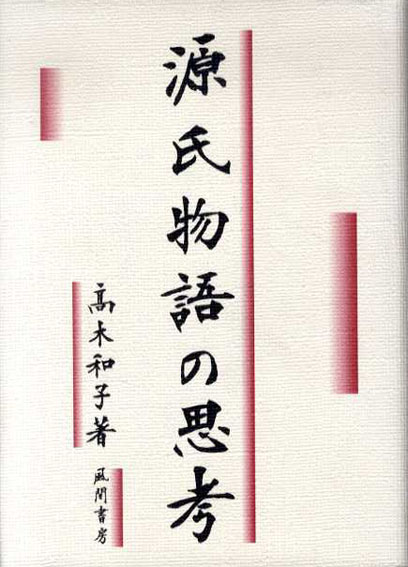 源氏物語の思考
高木和子著
風間書房